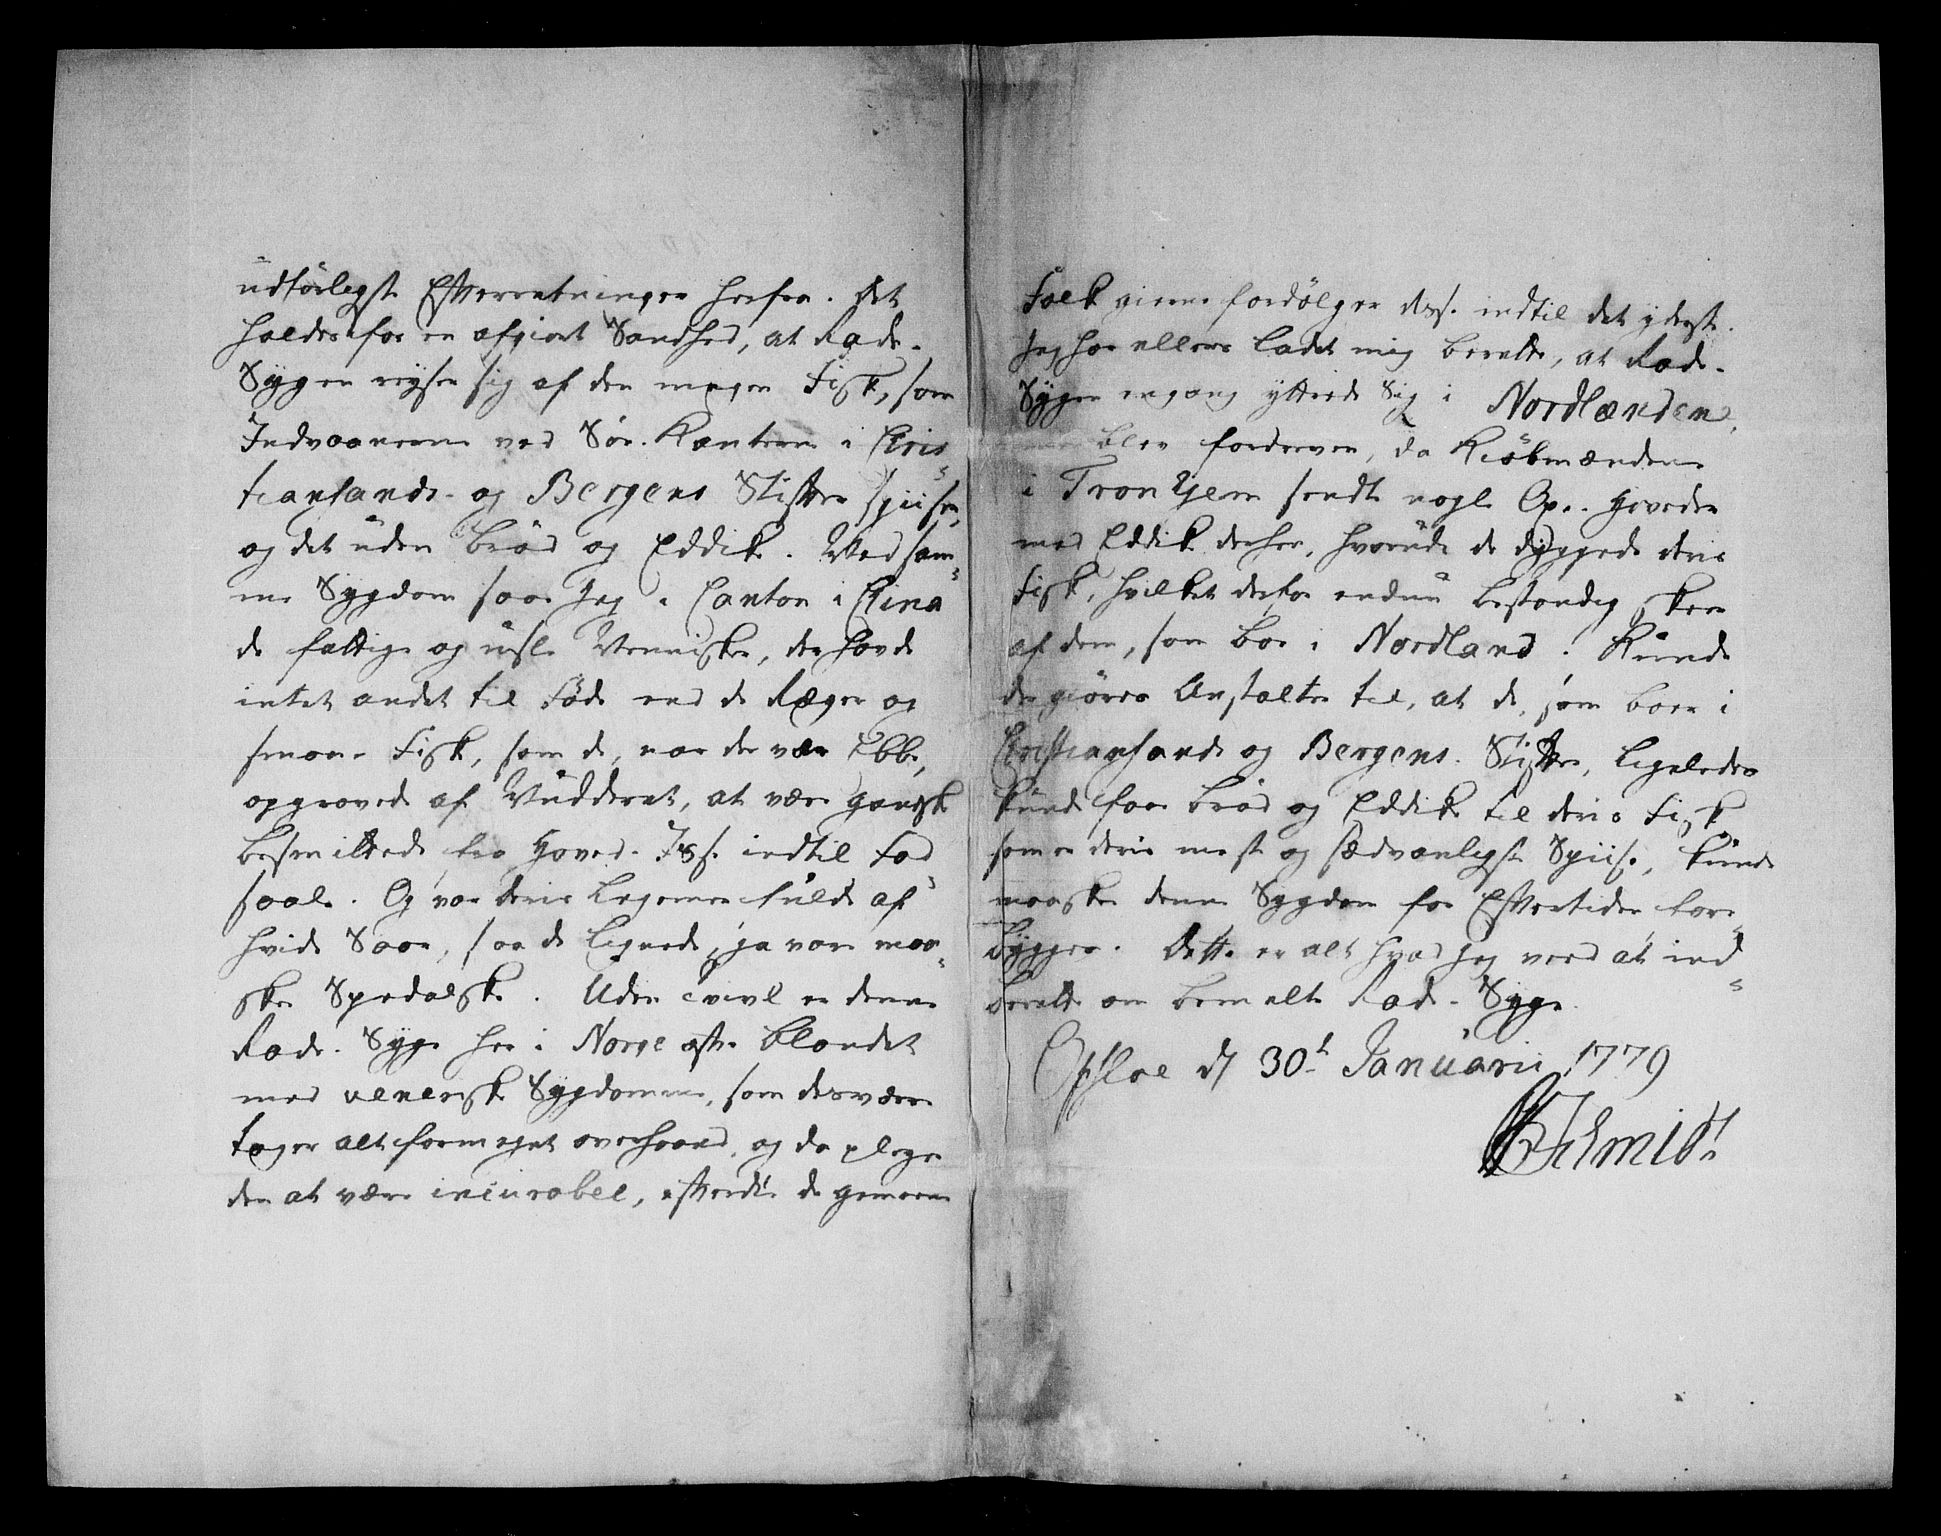 udførligste Efterretninger herfra. Det
holdes for en afgiort Sandhed, at Rade-
Sygen reyser sig af den megen Fisk, som
Indvaanerne ved Søe-Kanterne i Chris-
tiansands- og Bergens Stifter spiiser,
og det uden Brød og Eddike. Med sam-
me Sygdom saae Jeg i Canton i China
de fattige og usle Mennisker, der havde
intet andet til Føde end de Ræger og
smaae Fisk, som de, naar der var Ebbe,
opgravede af Mudderet, at være gandske
besmittede fra Hoved-Isse indtil Fod-
saale. Og var deris Legemer fulde af
hvide Saar, saa de lignede, ja vare maa-
skee Spedalske. Uden tvivl er denne
Rade-Syge her i Norge ofte blandet
med venerisk Sygdomme, som desværre
tager alt formeget overhaand, og da pleyer
den at være incurabel, efterdi de gemeene
Folk gierne fordølger dess. indtil det yderste.
Jeg har ellers ladet mig berette, at Rade-
Sygen engang yttrede sig i Nordlanden,
men blev fordreven, da Kiøbmændene
i Tronhjem sendte nogle Oxe-Hoveder
med Eddike derhen, hvorudi de dyppede deris
Fisk, hvilket derfor endnu bestandig skeer
af dem, som boe i Nordland. Kunde
der giøres Anstalter til, at de, som boer i
Christiansands og Bergens Stifter, ligeledes
kunde faae Brød og Eddike til deris Fisk
som er deris meste og sædvanligste Spiise, kunde
maaskee denne Sygdom for Eftertiden fore-
bygges. Dette er alt hvad Jeg veed at ind-
berette om bemelte Rade-Syge.
Opsloe d 30t Januarii 1779
Schmidt